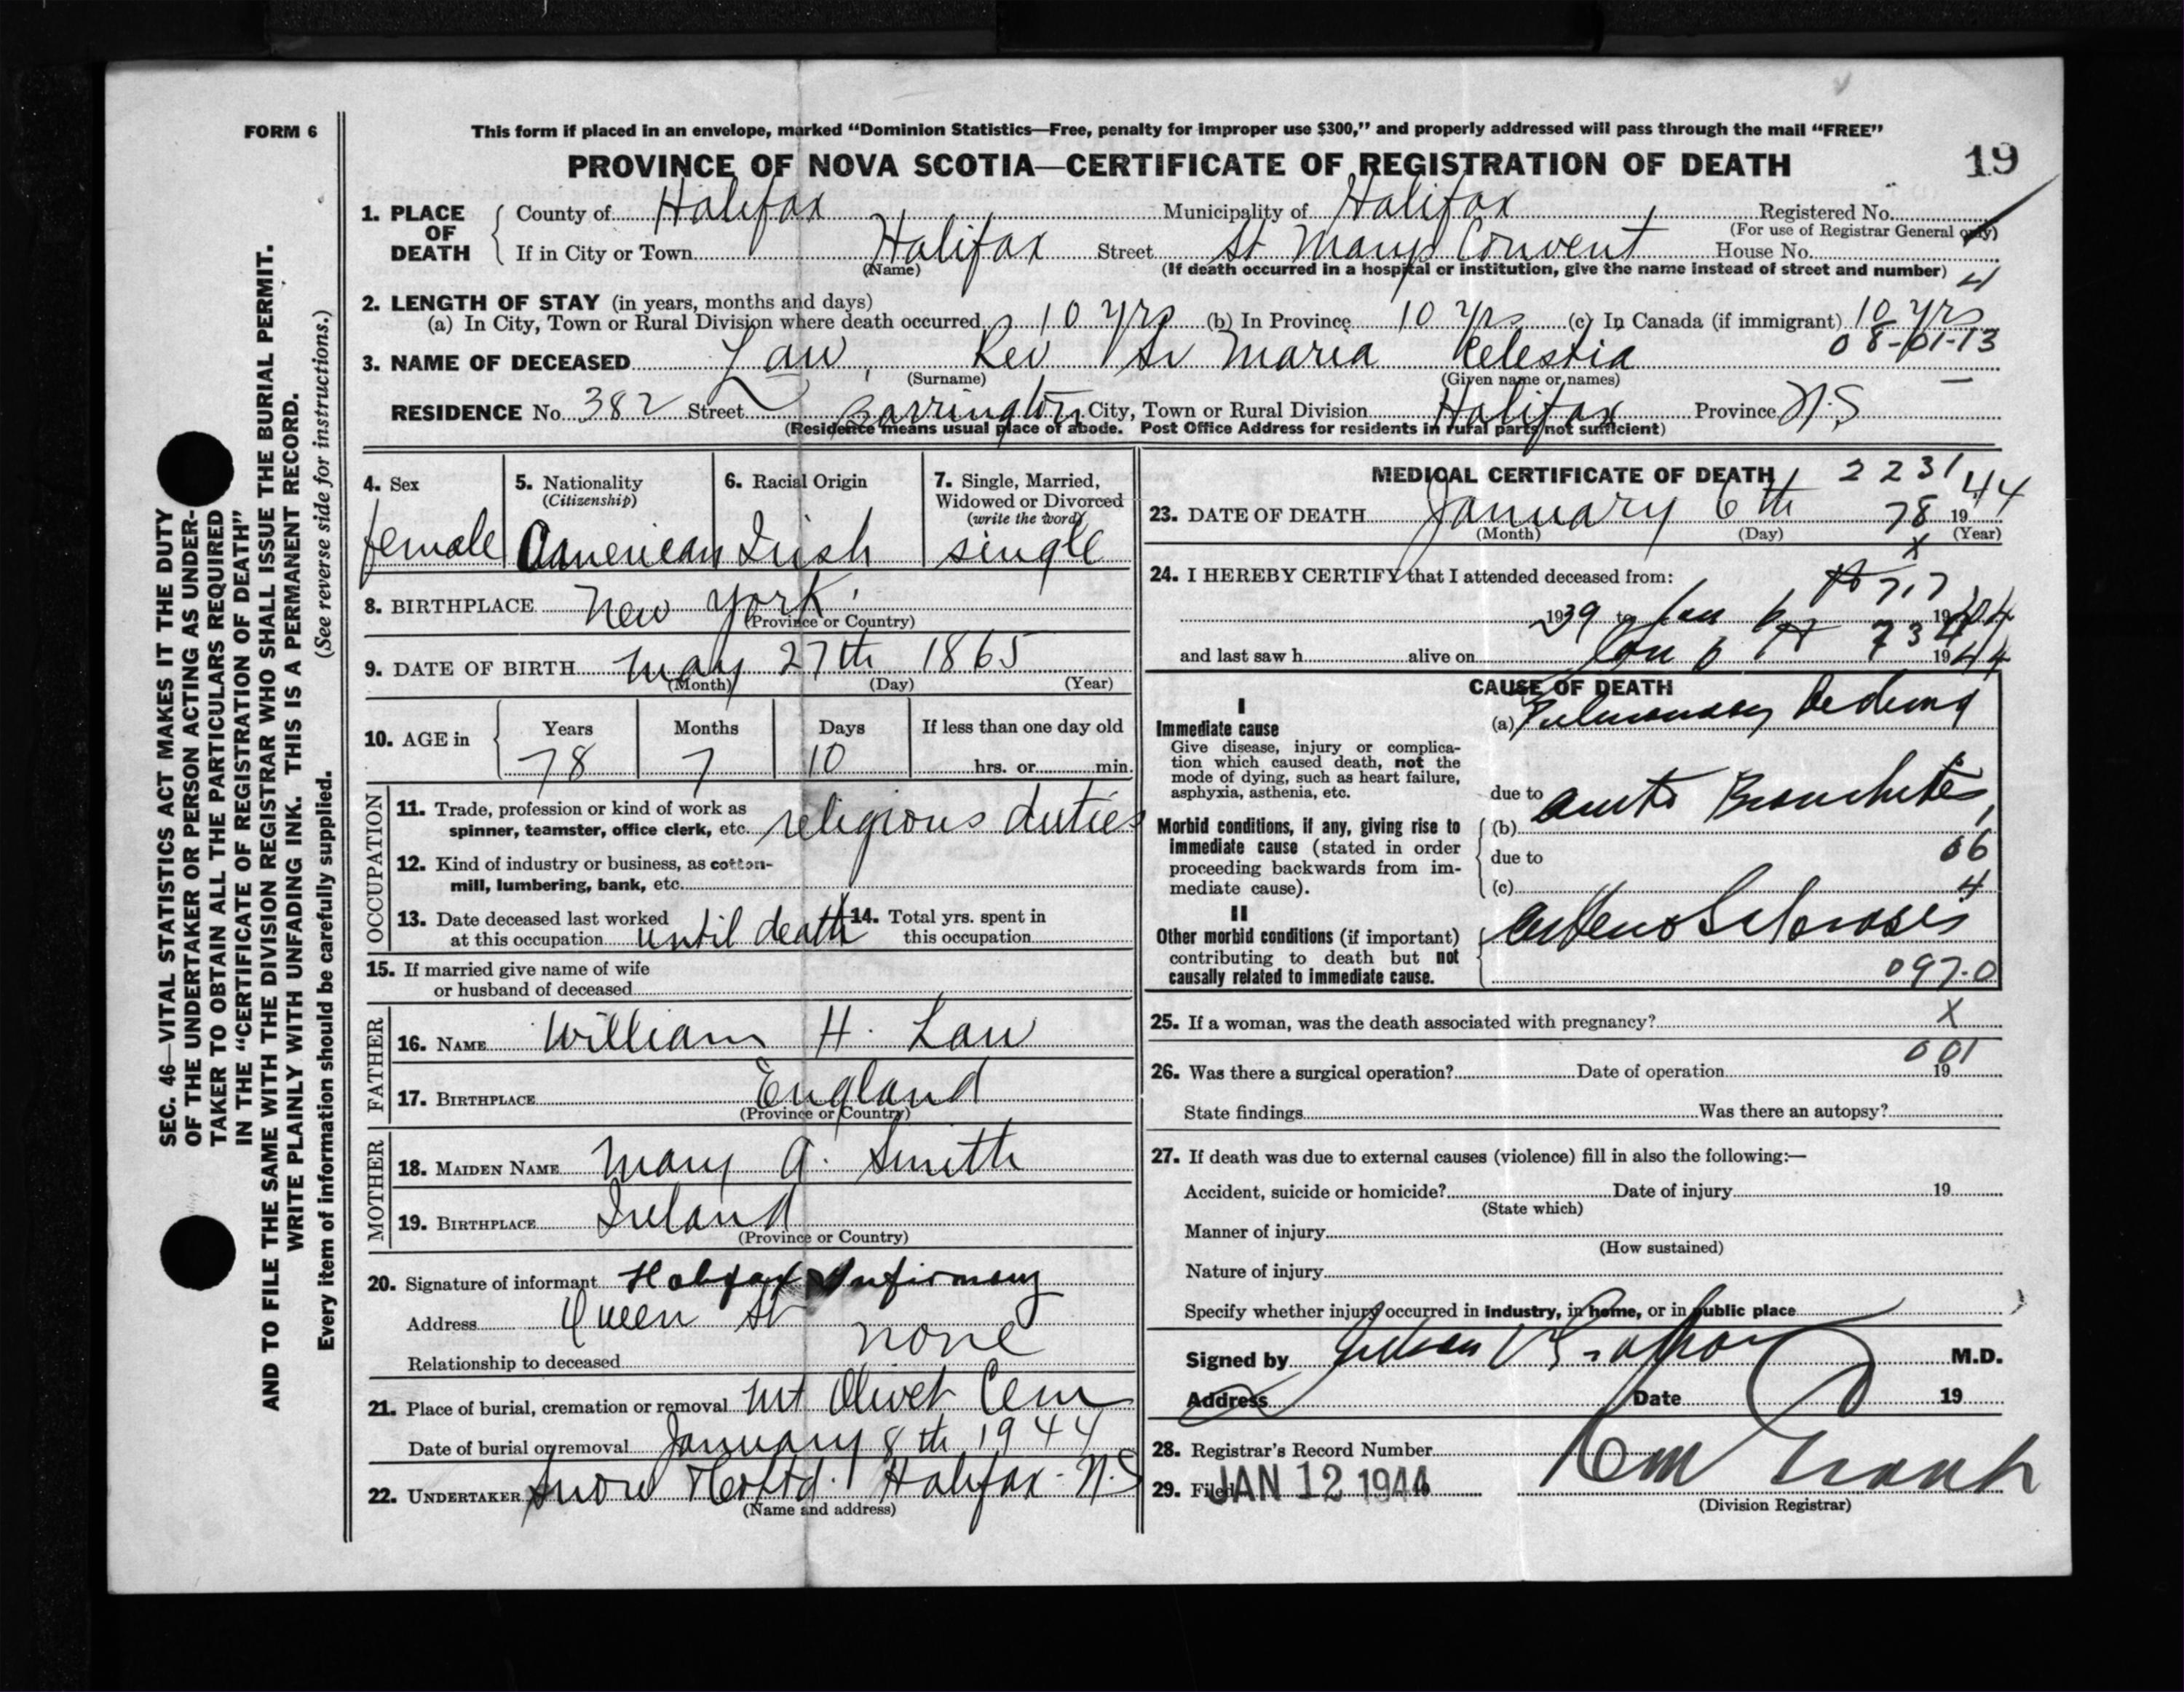 FORM 6
This form if placed in an envelope, marked “Dominion Statistics—Free, penalty for improper use $300,” and properly addressed will pass through the mail “FREE”
PROVINCE OF NOVA SCOTIA—CERTIFICATE OF REGISTRATION OF DEATH
19
1. PLACE OF DEATH
County of Halifax Municipality of Halifax Registered No.
(For use of Registrar General only)
If in City or Town Halifax Street St Marys Convent House No.
(Name) (If death occurred in a hospital or institution, give the name instead of street and number)
4
2. LENGTH OF STAY (in years, months and days)
(a) In City, Town or Rural Division where death occurred 10 yrs (b) In Province 10 yrs (c) In Canada (if immigrant) 10 yrs
08-01-13
3. NAME OF DECEASED Law, Rev Sr Maria Celestia
(Surname) (Given name or names)
RESIDENCE No. 382 Street Barrington City, Town or Rural Division Halifax Province N.S
(Residence means usual place of abode. Post Office Address for residents in rural parts not sufficient)
4. Sex
female
5. Nationality
(Citizenship)
American
6. Racial Origin
Irish
7. Single, Married, Widowed or Divorced
(write the word)
single
8. BIRTHPLACE New York
(Province or Country)
9. DATE OF BIRTH May 27th 1865
(Month) (Day) (Year)
10. AGE in
Years Months Days If less than one day old
78 7 10 hrs. or min.
OCCUPATION
11. Trade, profession or kind of work as
spinner, teamster, office clerk, etc. religious duties
12. Kind of industry or business, as cotton-
mill, lumbering, bank, etc.
13. Date deceased last worked
at this occupation until death
14. Total yrs. spent in
this occupation
15. If married give name of wife
or husband of deceased
FATHER
16. NAME William H. Law
17. BIRTHPLACE England
(Province or Country)
MOTHER
18. MAIDEN NAME Mary A. Smith
19. BIRTHPLACE Ireland
(Province or Country)
20. Signature of informant Halifax Infirmary
Address Queen St
Relationship to deceased none
21. Place of burial, cremation or removal Mt Olivet Cem
Date of burial or removal January 8th 1944
22. UNDERTAKER Snow & Co Ltd. Halifax - N.S
(Name and address)
MEDICAL CERTIFICATE OF DEATH
2231
23. DATE OF DEATH January 6th 78 19 44
(Month) (Day) (Year)
X
24. I HEREBY CERTIFY that I attended deceased from:
7.7
1939 to Jan 6 1944
and last saw h alive on Jan 6 1944
CAUSE OF DEATH
I
Immediate cause
Give disease, injury or complica-
tion which caused death, not the
mode of dying, such as heart failure,
asphyxia, asthenia, etc.
(a) Pulmonary Oedema
due to
Morbid conditions, if any, giving rise to
immediate cause (stated in order
proceeding backwards from im-
mediate cause).
(b) Acute Bronchitis
due to
06
(c) 4
II
Other morbid conditions (if important)
contributing to death but not
causally related to immediate cause.
Arterio Sclerosis
097-0
25. If a woman, was the death associated with pregnancy? X
001
26. Was there a surgical operation? Date of operation 19
State findings Was there an autopsy?
27. If death was due to external causes (violence) fill in also the following:—
Accident, suicide or homicide? Date of injury 19
(State which)
Manner of injury
(How sustained)
Nature of injury
Specify whether injury occurred in industry, in home, or in public place
Signed by M.D.
Address Date 19
28. Registrar's Record Number
29. Filed JAN 12 1944
(Division Registrar)
SEC. 46—VITAL STATISTICS ACT MAKES IT THE DUTY
OF THE UNDERTAKER OR PERSON ACTING AS UNDER-
TAKER TO OBTAIN ALL THE PARTICULARS REQUIRED
IN THE “CERTIFICATE OF REGISTRATION OF DEATH”
AND TO FILE THE SAME WITH THE DIVISION REGISTRAR WHO SHALL ISSUE THE BURIAL PERMIT.
WRITE PLAINLY WITH UNFADING INK. THIS IS A PERMANENT RECORD.
Every item of information should be carefully supplied. (See reverse side for instructions.)